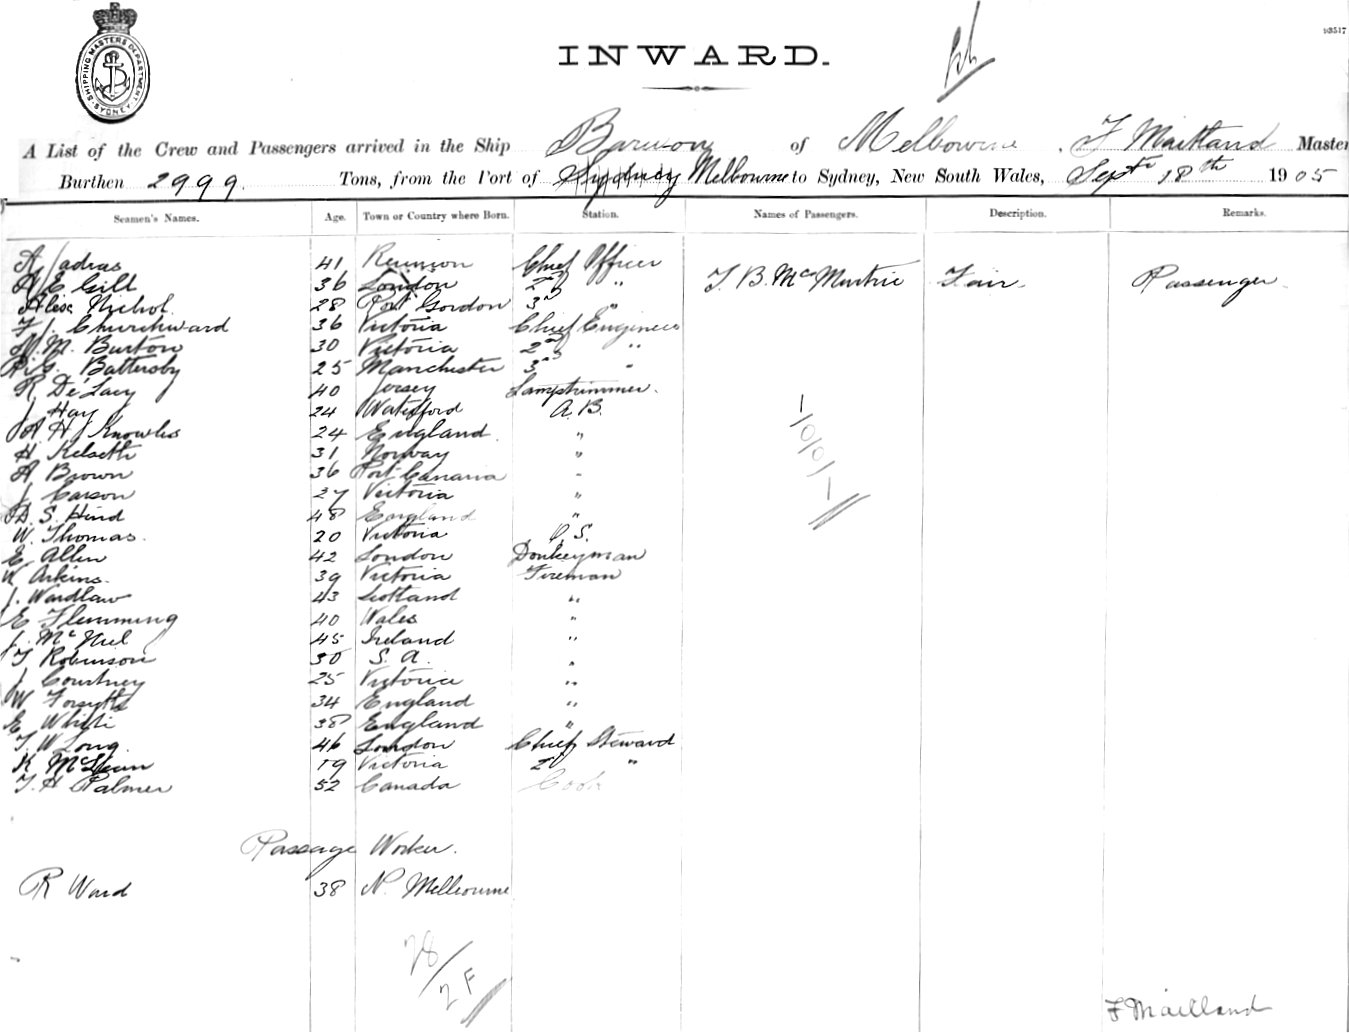 SHIPPING MASTERS DEPARTMENT SYDNEY
93517
INWARD.
A List of the Crew and Passengers arrived in the Ship Barwon of Melbourne, F Maitland Master
Burthen 2999. Tons, from the Port of Sydney Melbourne to Sydney, New South Wales, Septr 18th 1905
Seamen's Names. Age. Town or Country where Born. Station. Names of Passengers. Description. Remarks.
A Jadras 41 Reunion Chief Officer
A E Gill 36 London 2nd " T. B. McMurtrie Fair. Passenger
Alex Nichol. 28 Port Gordon 3rd "
F J. Churchward 36 Victoria Chief Engineer
W. M. Burton 30 Victoria 2nd "
R. G. Battersby 25 Manchester 3rd "
R De Lacy 40 Jersey Lamptrimmer.
J Hay 24 Waterford A. B.
A H Knowles 24 England "
H 31 Norway "
A Brown 36 Port Canaria -
J Carson 27 Victoria "
D. S. Hind 48 England "
W. Thomas. 20 Victoria O. S.
E. Allen 42 London Donkeyman
W Arkins. 39 Victoria Fireman
J. Wardlaw 43 Scotland "
E Flemming 40 Wales "
J. McNiel 45 Ireland "
T Robinson 30 S. A. "
J Courtney 25 Victoria "
W Forsyth 34 England "
E White 38 England "
T. W Long. 46 London Chief Steward
K 19 Victoria 2nd "
T. H Palmer 52 Canada Cook
Passage Worker.
R Ward 38 N. Melbourne
28/2F
F Maitland